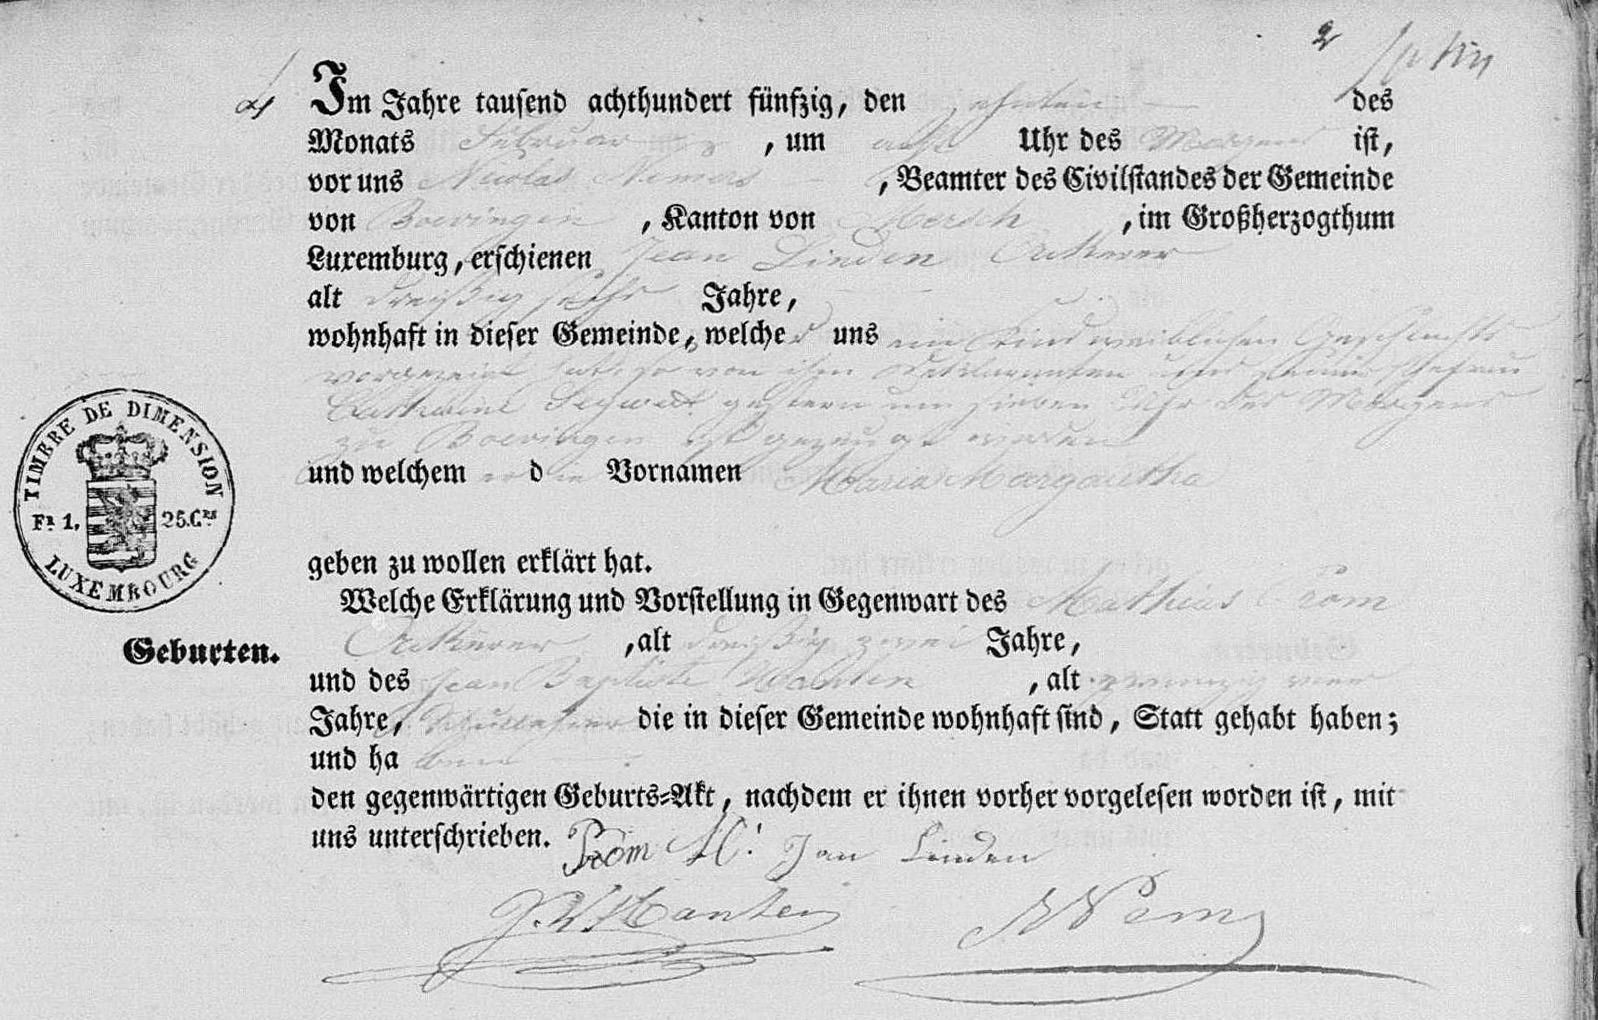 2
4 Im Jahre tausend achthundert fünfzig, den zehnten des
Monats Februar, um acht Uhr des Morgens ist,
vor uns Nicolas Nemers, Beamter des Civilstandes der Gemeinde
von Boevingen, Kanton von Mersch, im Großherzogthum
Luxemburg, erschienen Jean Linden Ackerer
alt dreißig sechs Jahre,
wohnhaft in dieser Gemeinde, welcher uns ein Kind weiblichen Geschlechts
vorgezeigt hat, so von ihm Deklaranten und seiner Ehefrau
Catharine gestern um sieben Uhr des Morgens
zu Boevingen ist gezeugt worden
und welchem er die Vornamen Maria Margaretha
geben zu wollen erklärt hat.
Welche Erklärung und Vorstellung in Gegenwart des Mathias Prom
Ackerer, alt dreißig zwei Jahre,
und des Jean Baptiste, alt zwanzig
Jahre, Schullehrer die in dieser Gemeinde wohnhaft sind, Statt gehabt haben;
und haben
den gegenwärtigen Geburts-Akt, nachdem er ihnen vorher vorgelesen worden ist, mit
uns unterschrieben. Prom M. Jean Linden
TIMBRE DE DIMENSION
Fr 1, 25.Ces
LUXEMBOURG
Geburten.